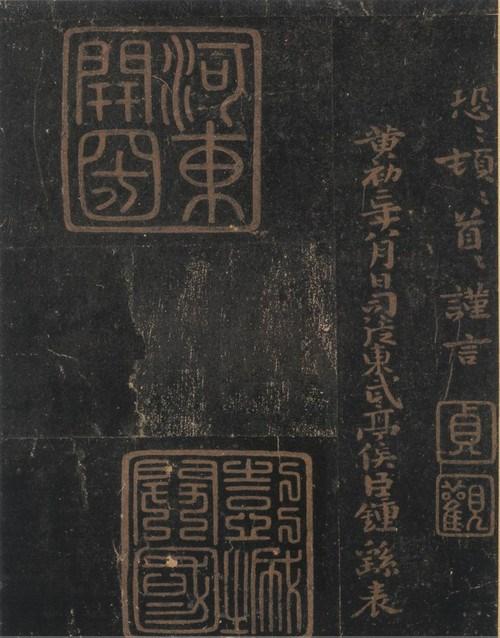 恐〻頓〻首〻謹言
貞觀
黄初二年八月日司徒東武亭侯臣鍾繇表
河東
開圀
彭城
開國